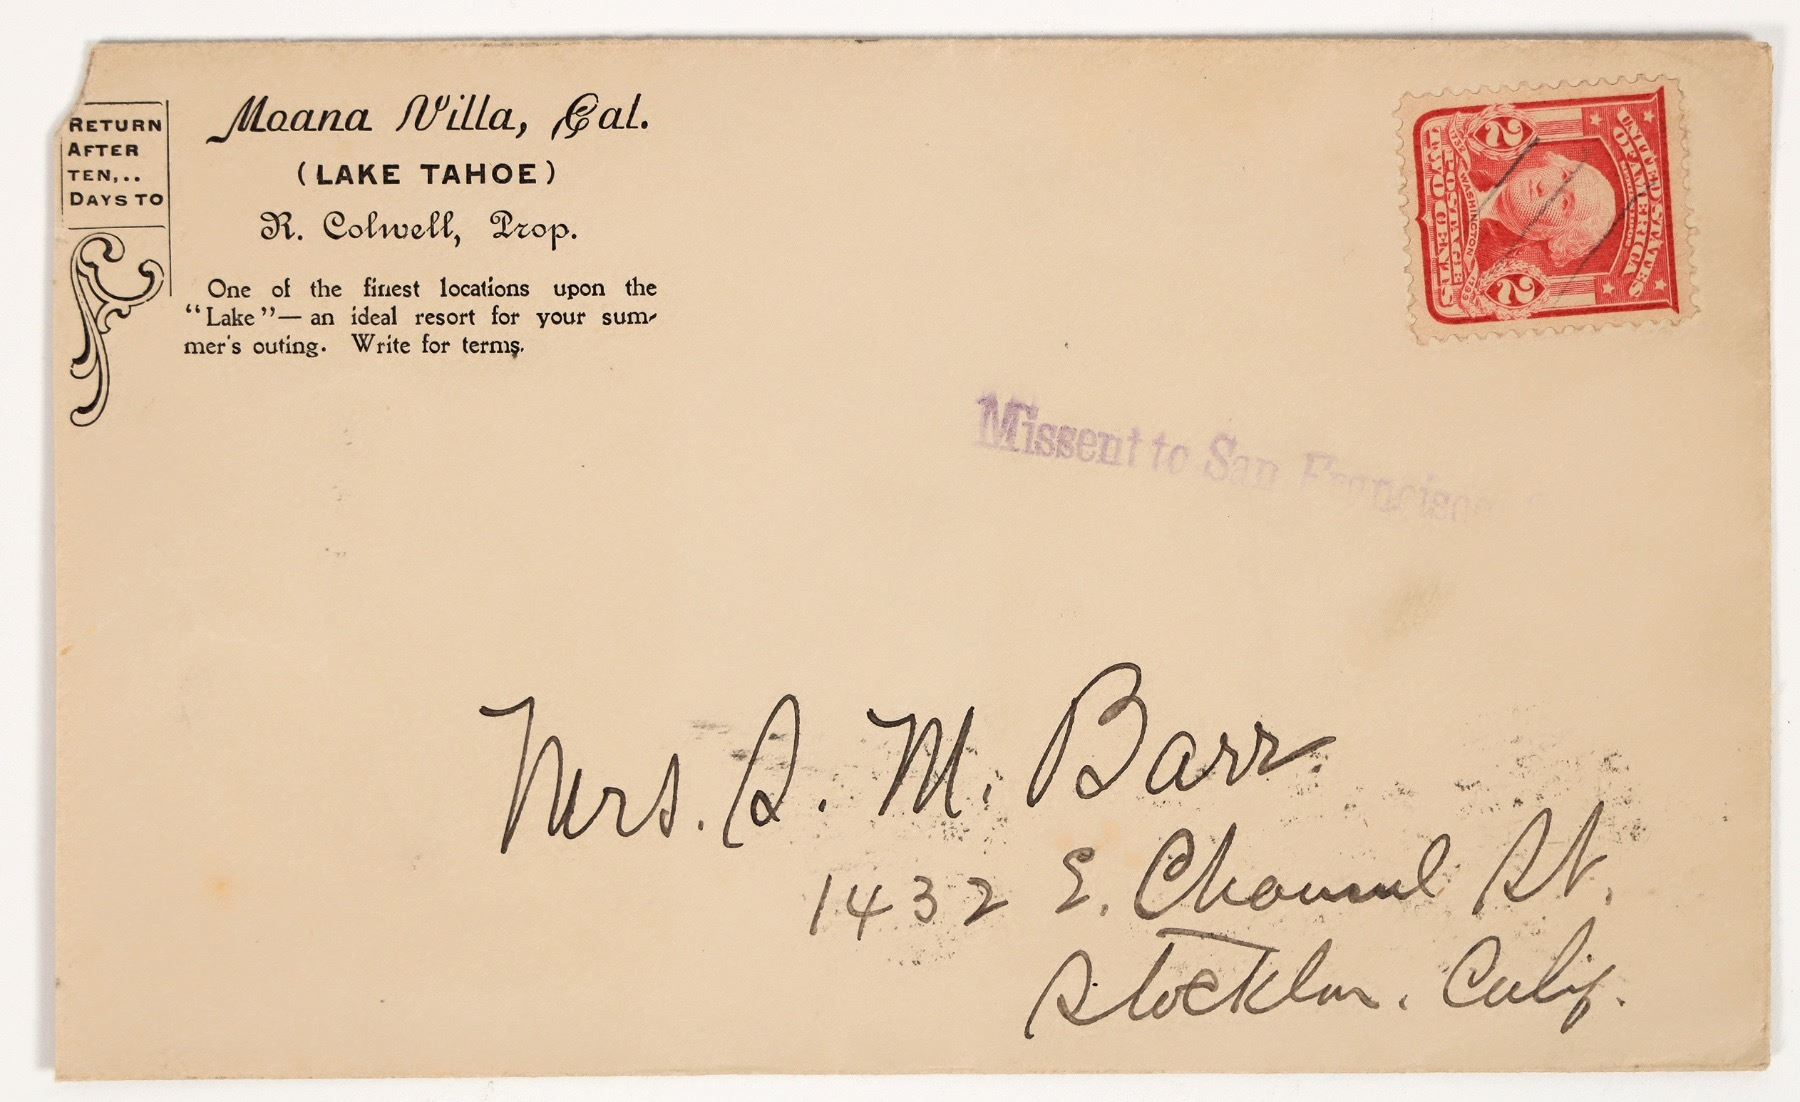 RETURN
AFTER
TEN,..
DAYS TO
Moana Villa, Cal.
(LAKE TAHOE)
R. Colwell, Prop.
One of the finest locations upon the
"Lake"—an ideal resort for your sum-
mer's outing. Write for terms.
UNITED STATES
OF AMERICA
1732 WASHINGTON 1799
POSTAGE
TWO CENTS
2 2
Missent to San Francisco
Mrs. S. M. Barr.
1432 E. Channel St.
Stockton. Calif.